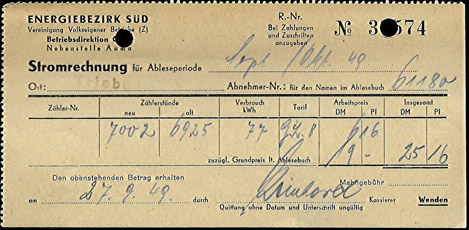 ENERGIEBEZIRK SÜD
Vereinigung Volkseigener Betriebe (Z)
Betriebsdirektion
Nebenstelle Auma
R.-Nr.
Bei Zahlungen
und Zuschriften
anzugeben
№ 3 574
Stromrechnung für Ableseperiode Sept / Okt. 49
Ort: Triebes Abnehmer-Nr.: für den Namen im Ablesebuch 61180
Zähler-Nr. Zählerstände Verbrauch Tarif Arbeitspreis Insgesamt
neu alt kWh DM Pf DM Pf
7002 6925 77 8 6 16
zuzügl. Grundpreis lt. Ablesebuch 19 - 25 16
Den obenstehenden Betrag erhalten Mahngebühr
am 27. 9. 49. Kassierer Wenden
Quittung ohne Datum und Unterschrift ungültig